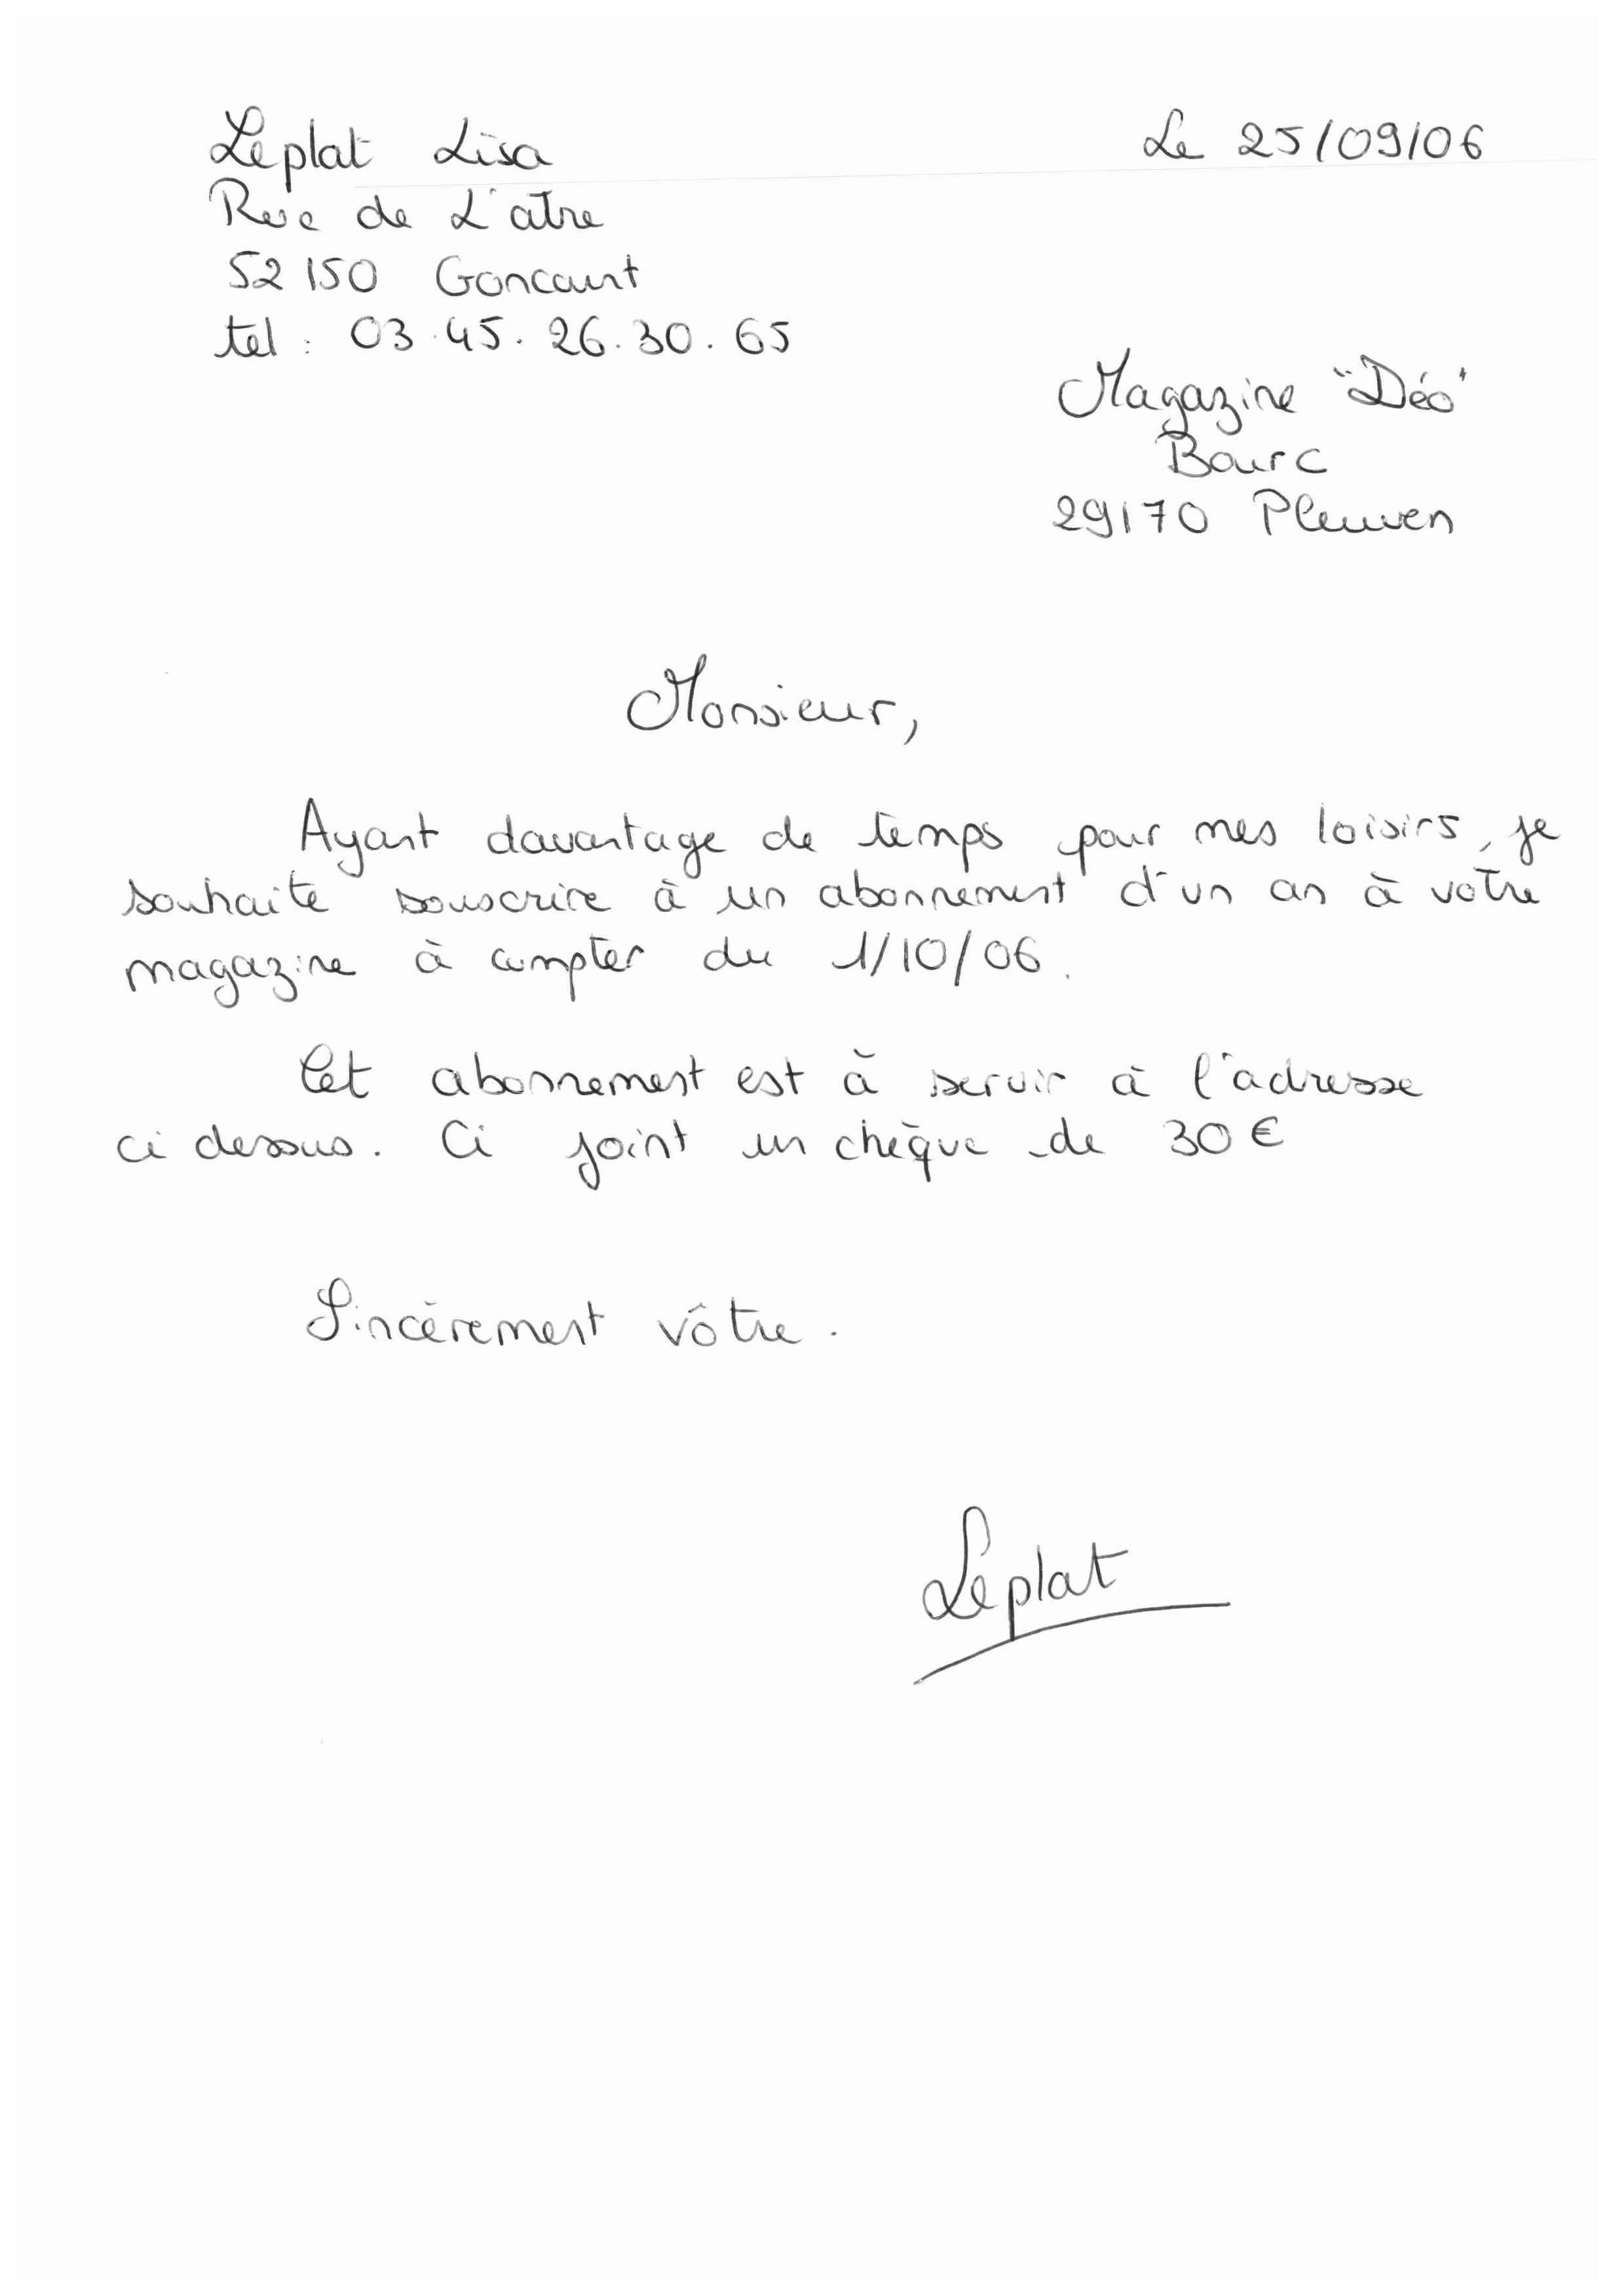 Leplat Lisa
Le 25/09/06
Rue de L'atre
52150 Goncourt
tel : 03.45.26.30.65
Magazine "Déo"
Bourc
29170 Pleuven
Monsieur,
Ayant davantage de temps pour mes loisirs, je
souhaite souscrire à un abonnement d'un an à votre
magazine à compter du 1/10/06.
Cet abonnement est à servir à l'adresse
ci dessus. Ci joint un chèque de 30€
Sincèrement vôtre.
Leplat